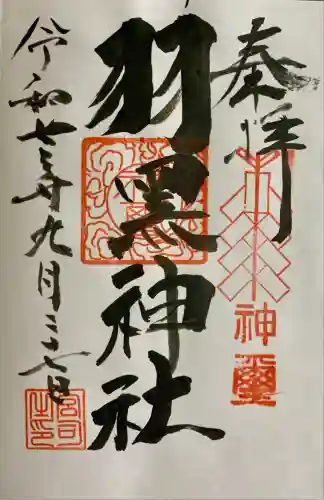 奉拝
羽黒神社
神璽
令和七年九月二十七日
宮司之印